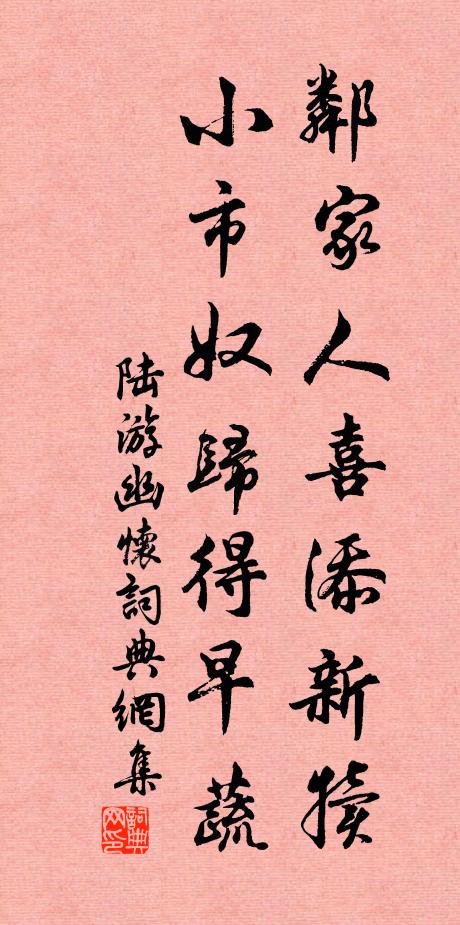 鄰家人喜添新犢
小市奴歸得早蔬
陆游幽懷詞典網集
詞典网印